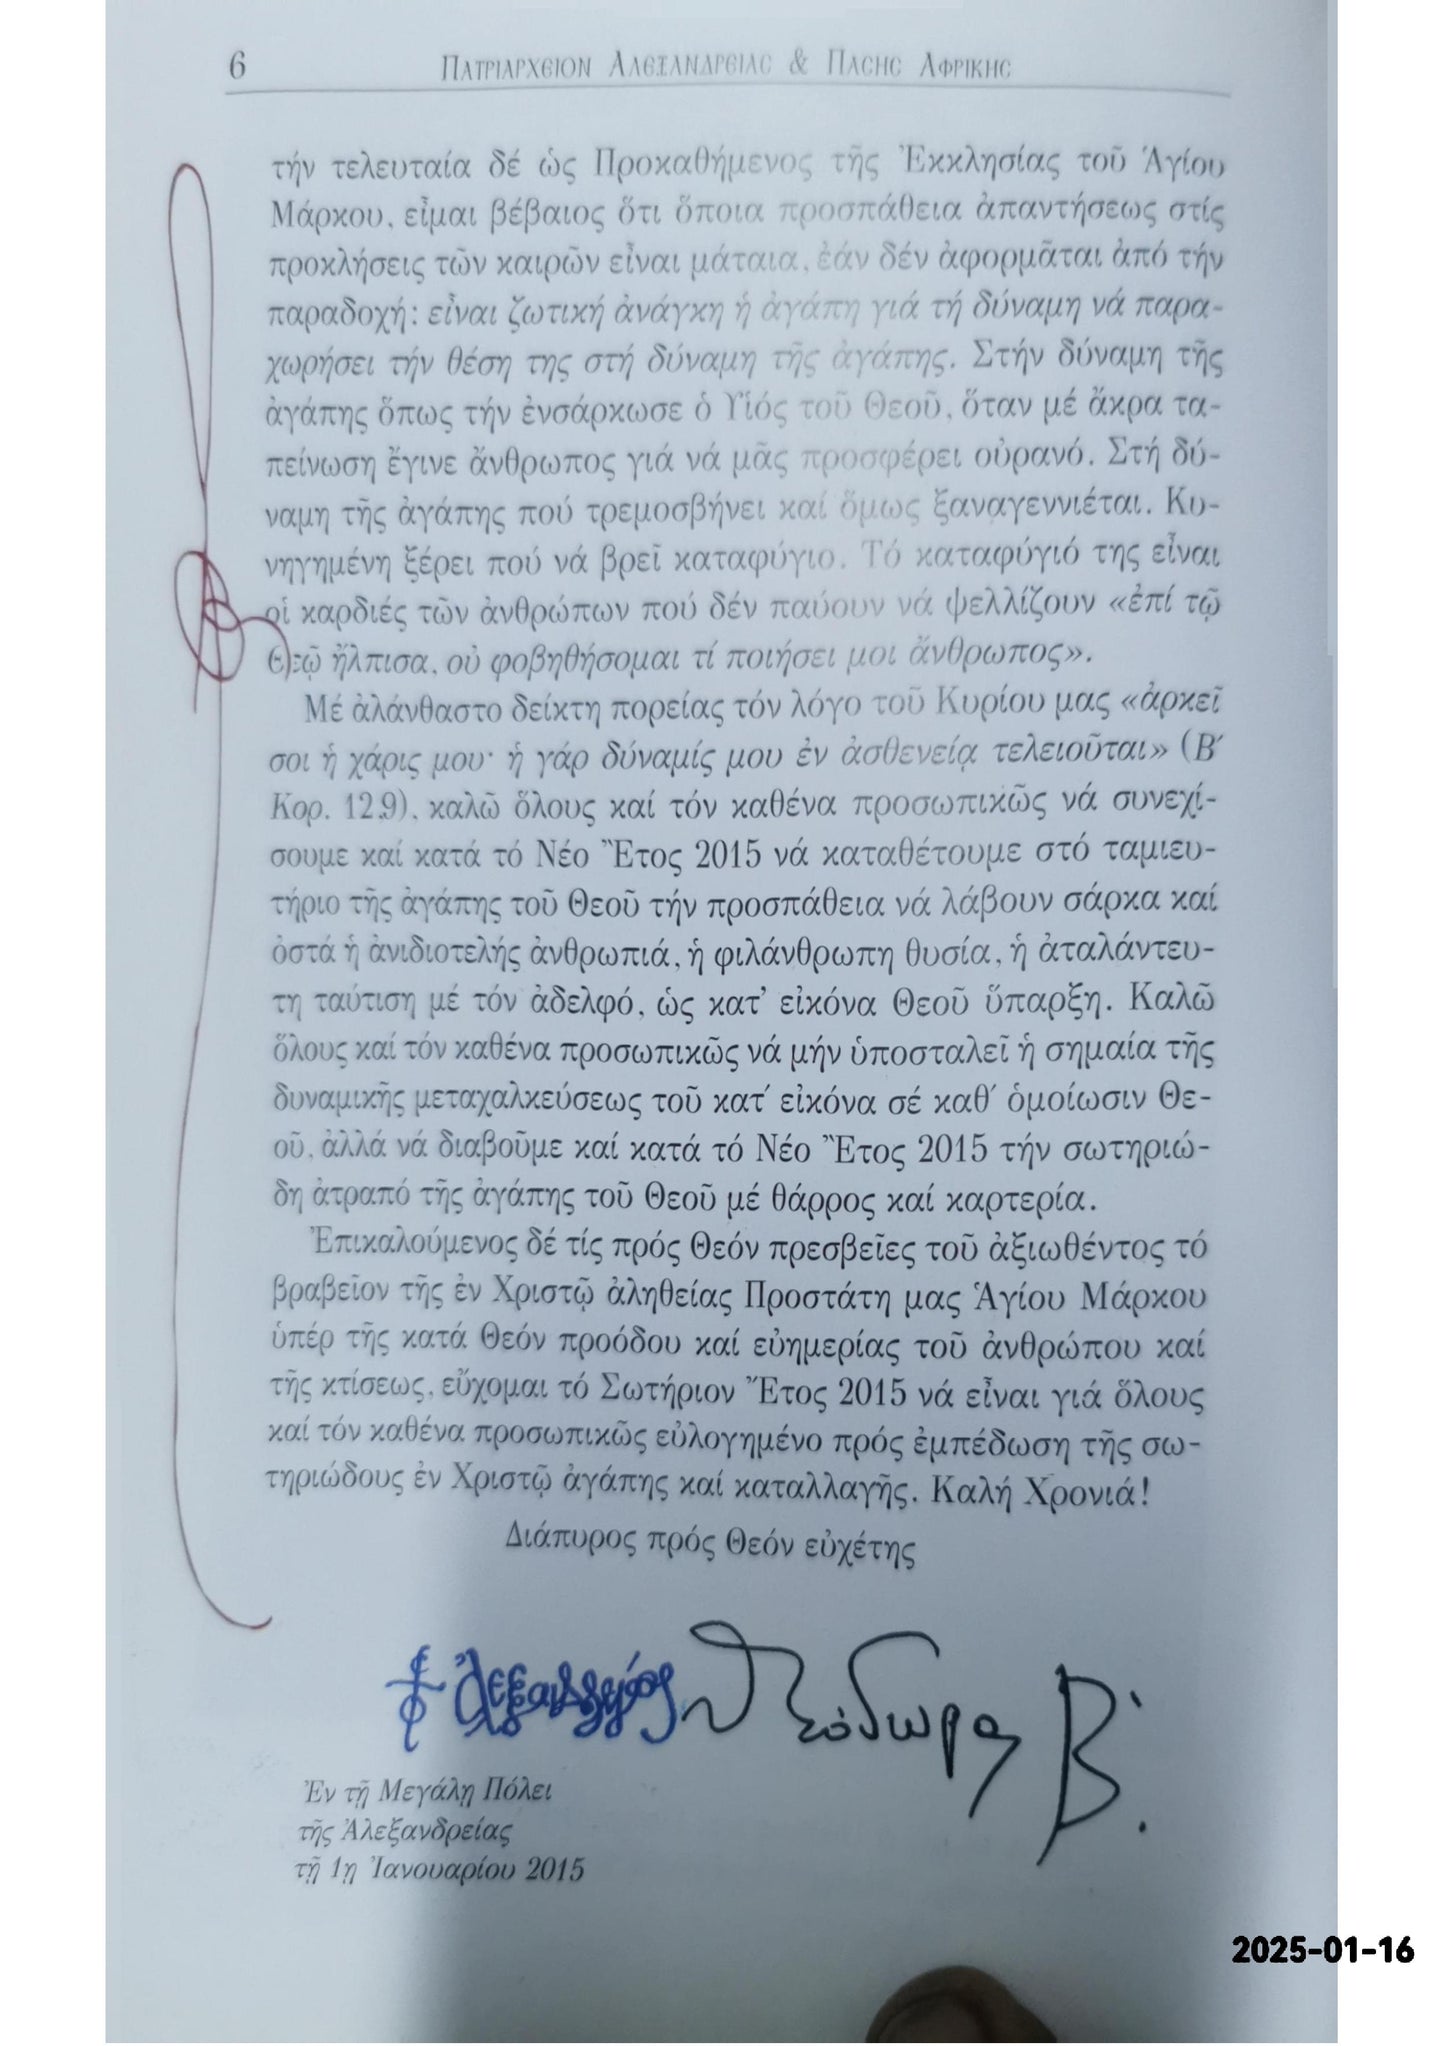 6 ΠΑΤΡΙΑΡΧΕΙΟΝ ΑΛΕΞΑΝΔΡΕΙΑΣ & ΠΑΣΗΣ ΑΦΡΙΚΗΣ
τήν τελευταία δέ ὡς Προκαθήμενος τῆς Ἐκκλησίας τοῦ Ἁγίου
Μάρκου, εἶμαι βέβαιος ὅτι ὅποια προσπάθεια ἀπαντήσεως στίς
προκλήσεις τῶν καιρῶν εἶναι μάταια, ἐάν δέν ἀφορμᾶται ἀπό τήν
παραδοχή: εἶναι ζωτική ἀνάγκη ἡ ἀγάπη γιά τή δύναμη νά παρα-
χωρήσει τήν θέση της στή δύναμη τῆς ἀγάπης. Στήν δύναμη τῆς
ἀγάπης ὅπως τήν ἐνσάρκωσε ὁ Υἱός τοῦ Θεοῦ, ὅταν μέ ἄκρα τα-
πείνωση ἔγινε ἄνθρωπος γιά νά μᾶς προσφέρει οὐρανό. Στή δύ-
ναμη τῆς ἀγάπης πού τρεμοσβήνει καί ὅμως ξαναγεννιέται. Κυ-
νηγημένη ξέρει πού νά βρεῖ καταφύγιο. Τό καταφύγιό της εἶναι
οἱ καρδιές τῶν ἀνθρώπων πού δέν παύουν νά ψελλίζουν «ἐπί τῷ
Θεῷ ἤλπισα, οὐ φοβηθήσομαι τί ποιήσει μοι ἄνθρωπος».
Μέ ἀλάνθαστο δείκτη πορείας τόν λόγο τοῦ Κυρίου μας «ἀρκεῖ
σοι ἡ χάρις μου· ἡ γάρ δύναμίς μου ἐν ἀσθενείᾳ τελειοῦται» (Β΄
Κορ. 12,9), καλῶ ὅλους καί τόν καθένα προσωπικῶς νά συνεχί-
σουμε καί κατά τό Νέο Ἔτος 2015 νά καταθέτουμε στό ταμιευ-
τήριο τῆς ἀγάπης τοῦ Θεοῦ τήν προσπάθεια νά λάβουν σάρκα καί
ὀστά ἡ ἀνιδιοτελής ἀνθρωπιά, ἡ φιλάνθρωπη θυσία, ἡ ἀταλάντευ-
τη ταύτιση μέ τόν ἀδελφό, ὡς κατ᾽ εἰκόνα Θεοῦ ὕπαρξη. Καλῶ
ὅλους καί τόν καθένα προσωπικῶς νά μήν ὑποσταλεῖ ἡ σημαία τῆς
δυναμικῆς μεταχαλκεύσεως τοῦ κατ᾽ εἰκόνα σέ καθ᾽ ὁμοίωσιν Θε-
οῦ, ἀλλά νά διαβοῦμε καί κατά τό Νέο Ἔτος 2015 τήν σωτηριώ-
δη ἀτραπό τῆς ἀγάπης τοῦ Θεοῦ μέ θάρρος καί καρτερία.
Ἐπικαλούμενος δέ τίς πρός Θεόν πρεσβεῖες τοῦ ἀξιωθέντος τό
βραβεῖον τῆς ἐν Χριστῷ ἀληθείας Προστάτη μας Ἁγίου Μάρκου
ὑπέρ τῆς κατά Θεόν προόδου καί εὐημερίας τοῦ ἀνθρώπου καί
τῆς κτίσεως, εὔχομαι τό Σωτήριον Ἔτος 2015 νά εἶναι γιά ὅλους
καί τόν καθένα προσωπικῶς εὐλογημένο πρός ἐμπέδωση τῆς σω-
τηριώδους ἐν Χριστῷ ἀγάπης καί καταλλαγῆς. Καλή Χρονιά!
Διάπυρος πρός Θεόν εὐχέτης
Ἀλεξανδρείας Θεόδωρος Β΄.
Ἐν τῇ Μεγάλῃ Πόλει
τῆς Ἀλεξανδρείας
τῇ 1ῃ Ἰανουαρίου 2015
2025-01-16